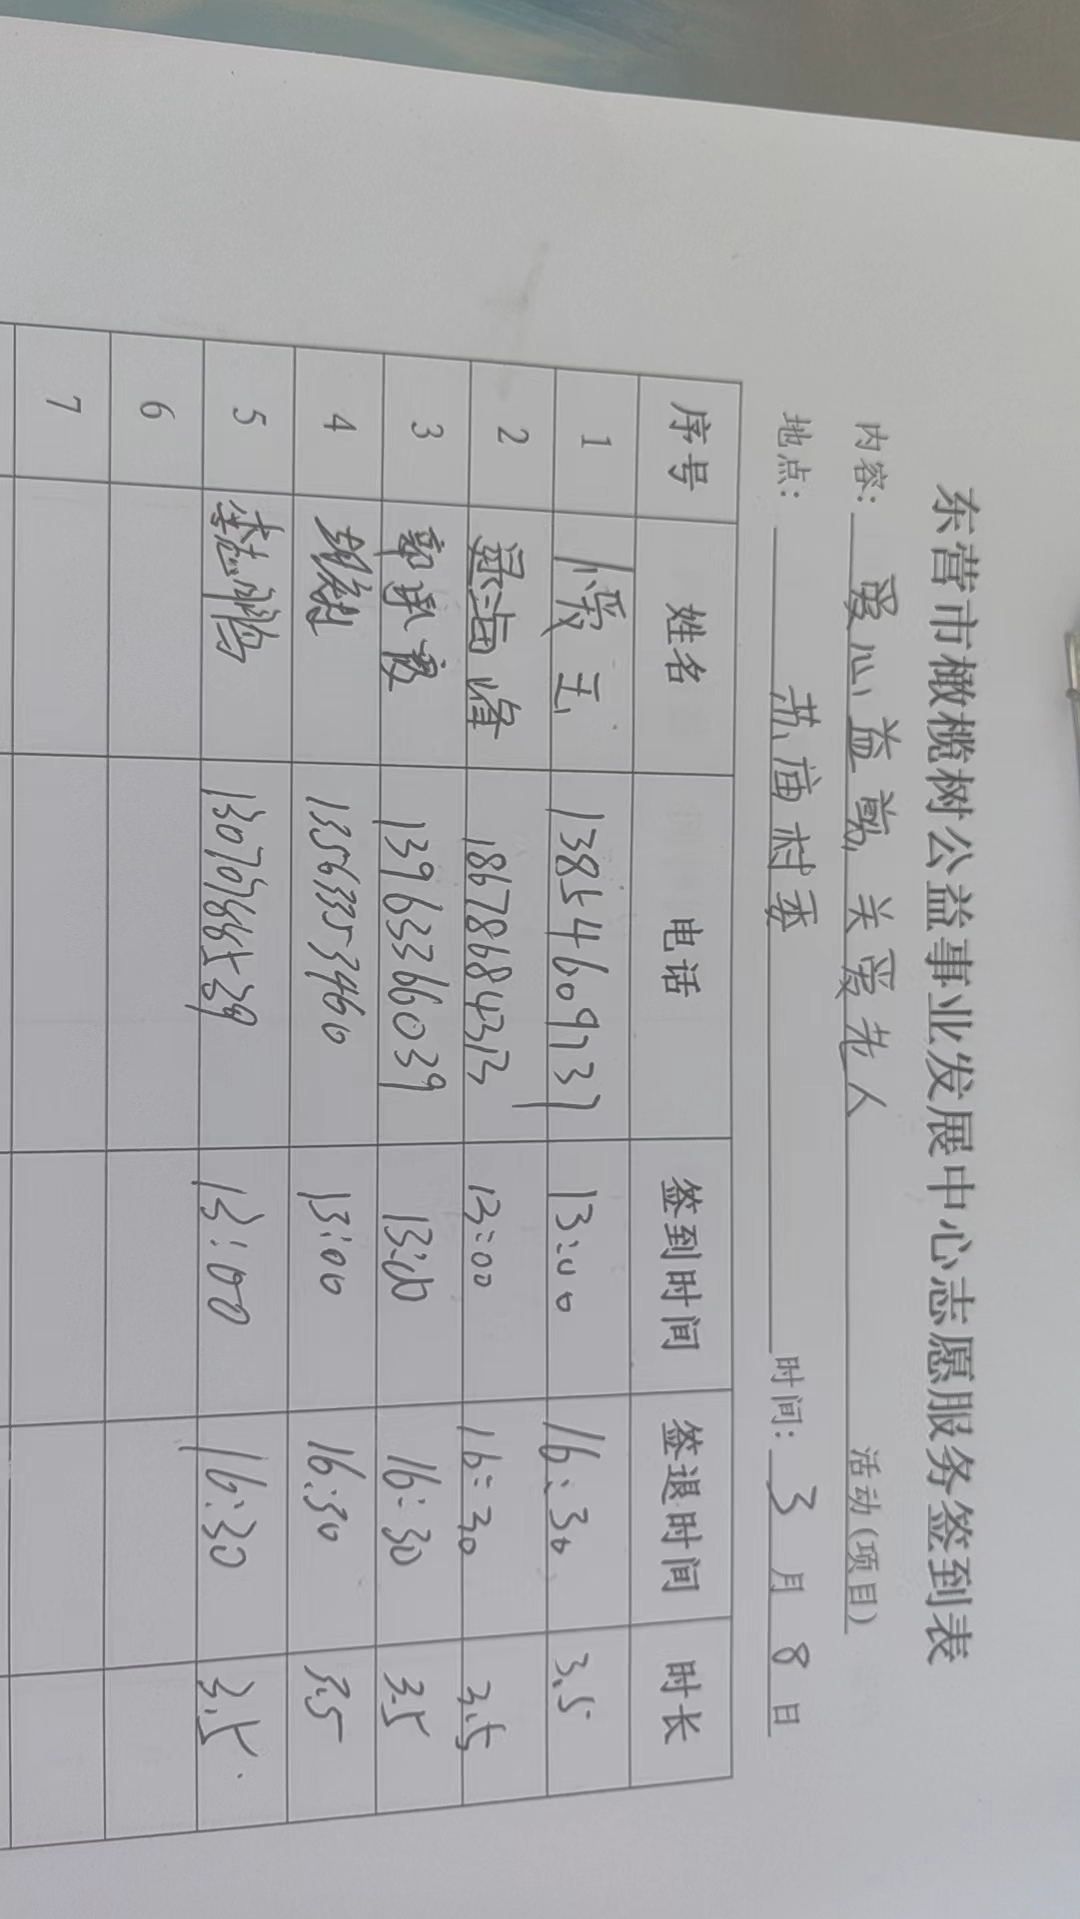 东营市橄榄树公益事业发展中心志愿服务签到表
内容: 爱心益剪 关爱老人 活动(项目)
地点: 苏庙村委 时间: 3月8日
序号 姓名 电话 签到时间 签退时间 时长
1 13854609737 13:00 16:30 3.5
2 18678684313 13:00 16:30 3.5
3 13963366039 13:00 16:30 3.5
4 13563353460 13:00 16:30 3.5
5 13:00 16:30 3.5
6
7